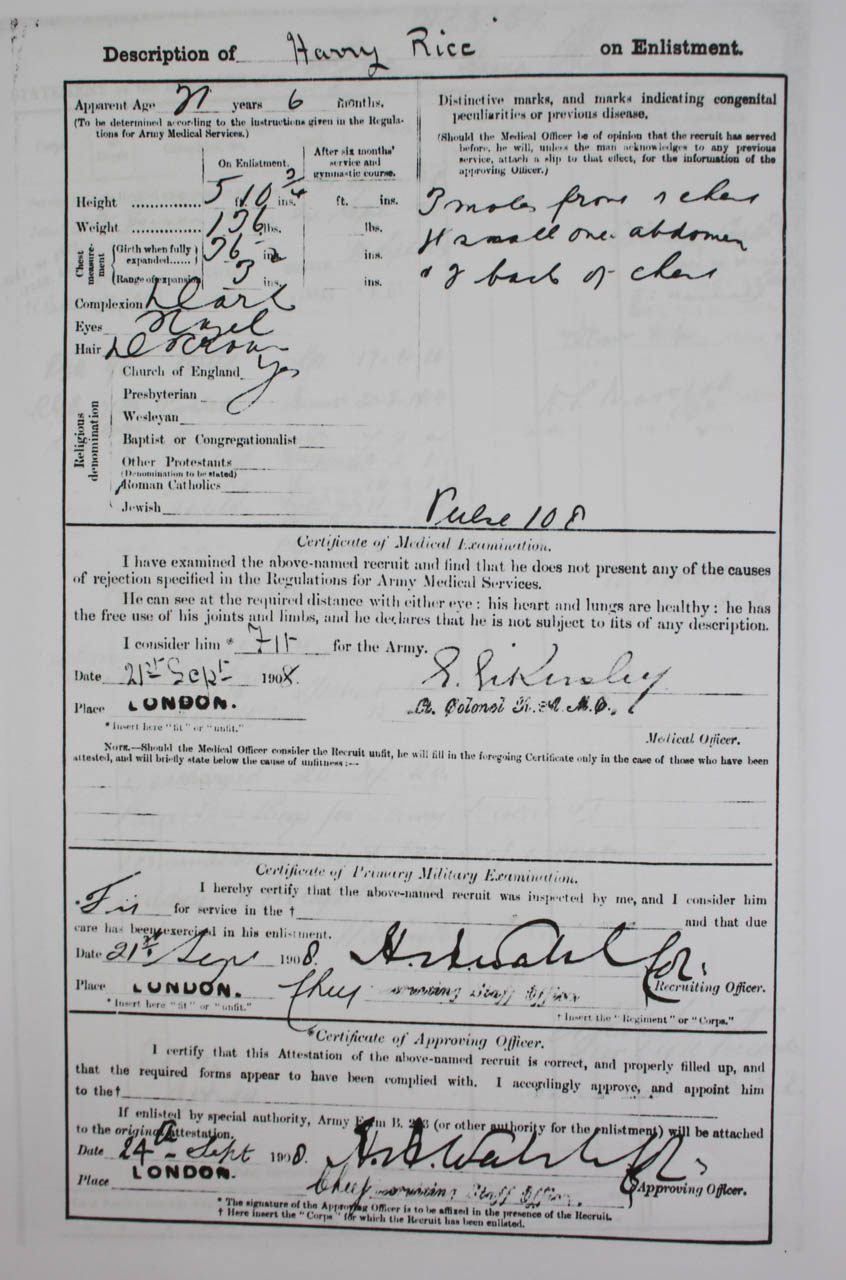 Description of Harry Rice on Enlistment.
Apparent Age 21 years 6 months.
(To be determined according to the instructions given in the Regulations for Army Medical Services.)
Distinctive marks, and marks indicating congenital
peculiarities or previous disease.
(Should the Medical Officer be of opinion that the recruit has served
before, he will, unless the man acknowledges to any previous
service, attach a slip to that effect, for the information of the
approving Officer.)
On Enlistment.
After six months'
service and
gymnastic course.
Height 5 ft. 10 3/4 ins. ft. ins.
Weight 136 lbs. lbs.
Chest measurement
Girth when fully expanded 36 ins. ins.
Range of expansion 3 ins. ins.
Complexion Dark
Eyes Hazel
Hair D Brown
3 moles front chest
small one abdomen
2 back of chest
Religious denomination
Church of England Yes
Presbyterian
Wesleyan
Baptist or Congregationalist
Other Protestants
(Denomination to be stated)
Roman Catholics
Jewish
Pulse 108
Certificate of Medical Examination.
I have examined the above-named recruit and find that he does not present any of the causes
of rejection specified in the Regulations for Army Medical Services.
He can see at the required distance with either eye: his heart and lungs are healthy: he has
the free use of his joints and limbs, and he declares that he is not subject to fits of any description.
I consider him * Fit for the Army.
Date 21st Sept 1908.
Place LONDON.
Lt. Colonel R.A.M.C.
* Insert here "fit" or "unfit."
Medical Officer.
NOTE.—Should the Medical Officer consider the Recruit unfit, he will fill in the foregoing Certificate only in the case of those who have been
attested, and will briefly state below the cause of unfitness:—
Certificate of Primary Military Examination.
I hereby certify that the above-named recruit was inspected by me, and I consider him
* Fit for service in the † and that due
care has been exercised in his enlistment.
Date 21st Sept 1908. H. A. Walsh Col:
Place LONDON. Chief Recruiting Staff Officer Recruiting Officer.
* Insert here "fit" or "unfit."
† Insert the "Regiment" or "Corps."
*Certificate of Approving Officer.
I certify that this Attestation of the above-named recruit is correct, and properly filled up, and
that the required forms appear to have been complied with. I accordingly approve, and appoint him
to the†
If enlisted by special authority, Army Form B. 203 (or other authority for the enlistment) will be attached
to the original attestation.
Date 24th Sept 1908. H. A. Walsh Col:
LONDON.
Place Chief Recruiting Staff Officer. Approving Officer.
* The signature of the Approving Officer is to be affixed in the presence of the Recruit.
† Here insert the "Corps" for which the Recruit has been enlisted.